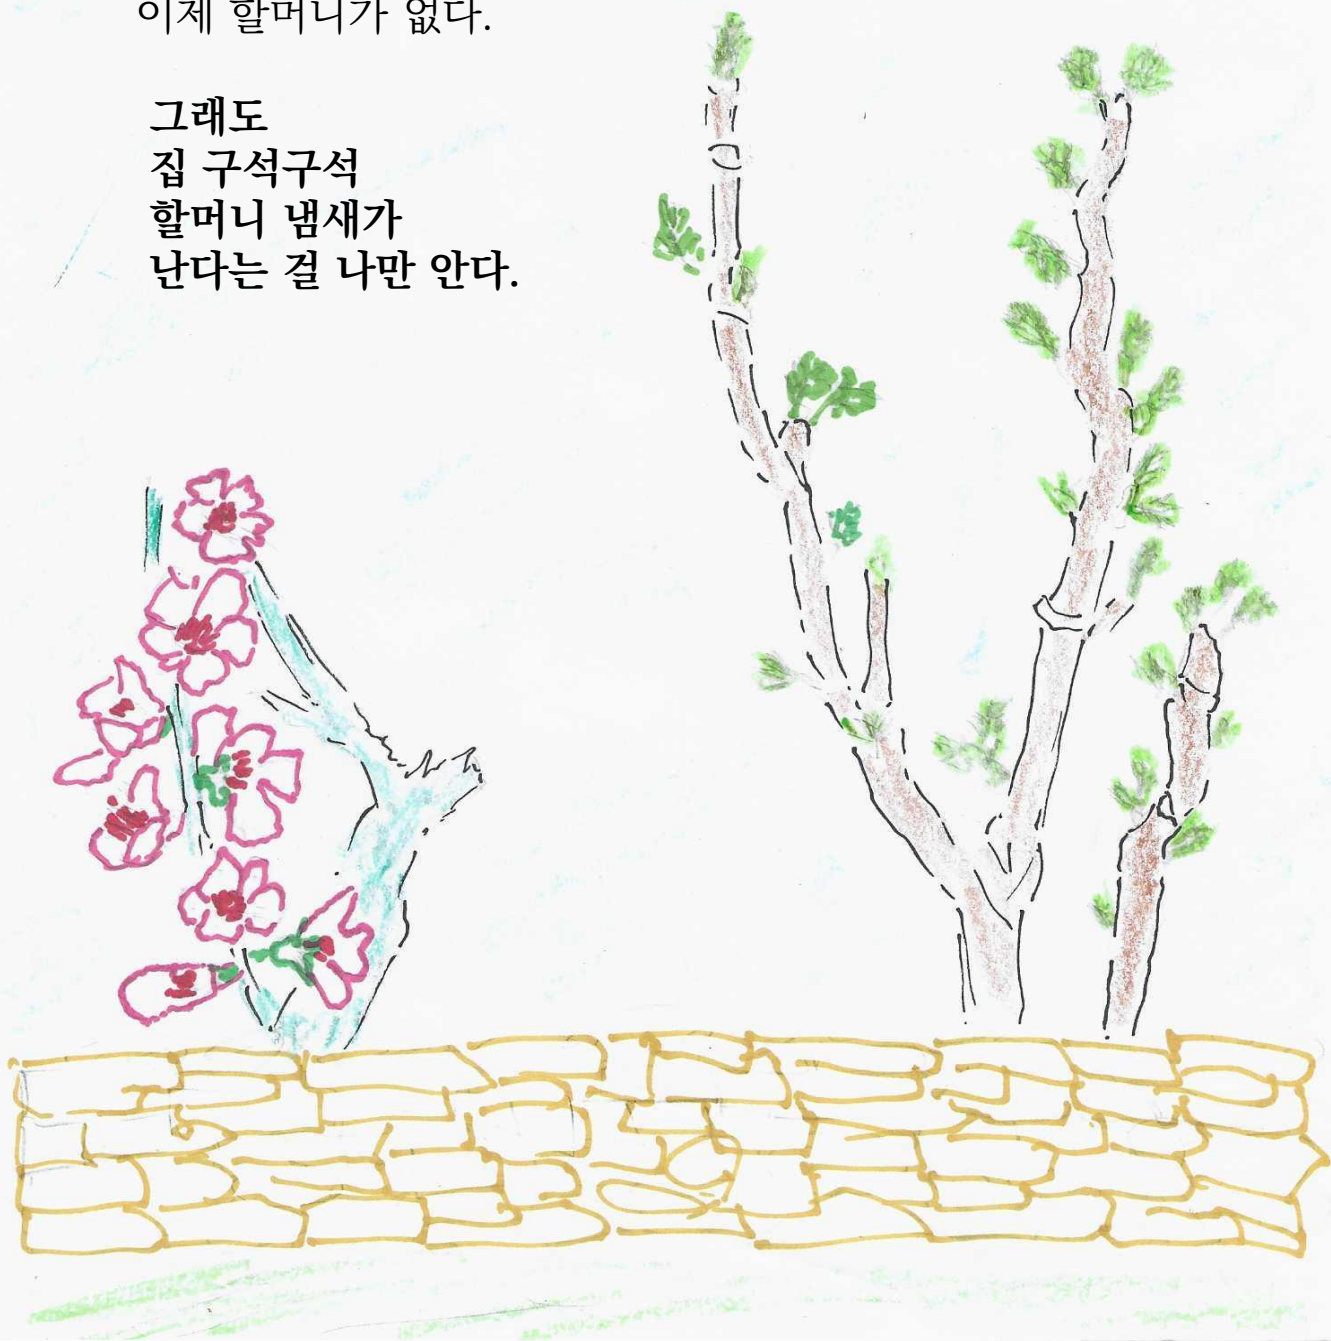 이제 할머니가 없다.
그래도
집 구석구석
할머니 냄새가
난다는 걸 나만 안다.